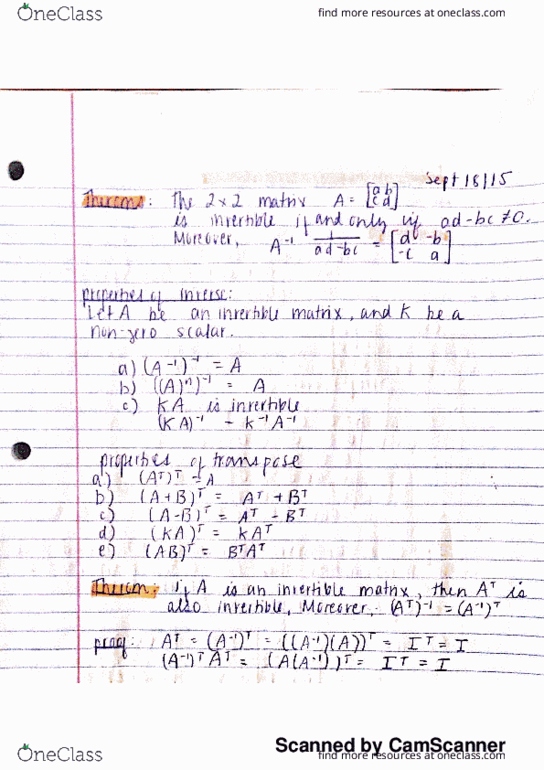 OneClass
find more resources at oneclass.com
Sept 18/15
Therom: The 2x2 matrix A = [a b c d]
is invertible if and only if ad-bc ≠0.
Moreover, A⁻¹ 1/ad-bc = [d -b -c a]
properties of inverse:
Let A be an invertible matrix, and K be a
non-zero scalar.
a) (A⁻¹)⁻¹ = A
b) ((A)ⁿ)⁻¹ = A
c) KA is invertible
(KA)⁻¹ - k⁻¹A⁻¹
properties of transpose
a) (Aᵀ)ᵀ - A
b) (A+B)ᵀ = Aᵀ + Bᵀ
c) (A-B)ᵀ = Aᵀ - Bᵀ
d) (KA)ᵀ = KAᵀ
e) (AB)ᵀ = BᵀAᵀ
Therom: If A is an invertible matrix, then Aᵀ is
also invertible, Moreover, (Aᵀ)⁻¹ = (A⁻¹)ᵀ
proof: Aᵀ = (A⁻¹)ᵀ = ((A⁻¹)(A))ᵀ = Iᵀ = I
(A⁻¹)ᵀ Aᵀ = (A(A⁻¹))ᵀ = Iᵀ = I
Scanned by CamScanner
OneClass
find more resources at oneclass.com